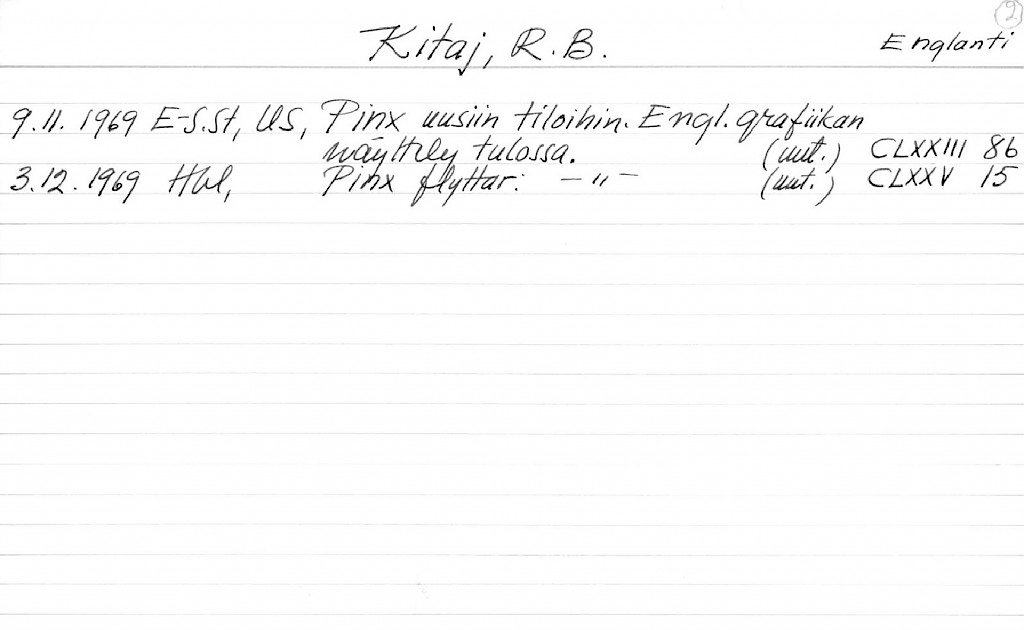 2
Kitaj, R.B. Englanti
9.11.1969 E-S.St, US, Pinx uusiin tiloihin. Engl. grafiikan
näyttely tulossa. (uut.) CLXXIII 86
3.12.1969 Hbl, Pinx flyttar: —〃— (uut.) CLXXV 15